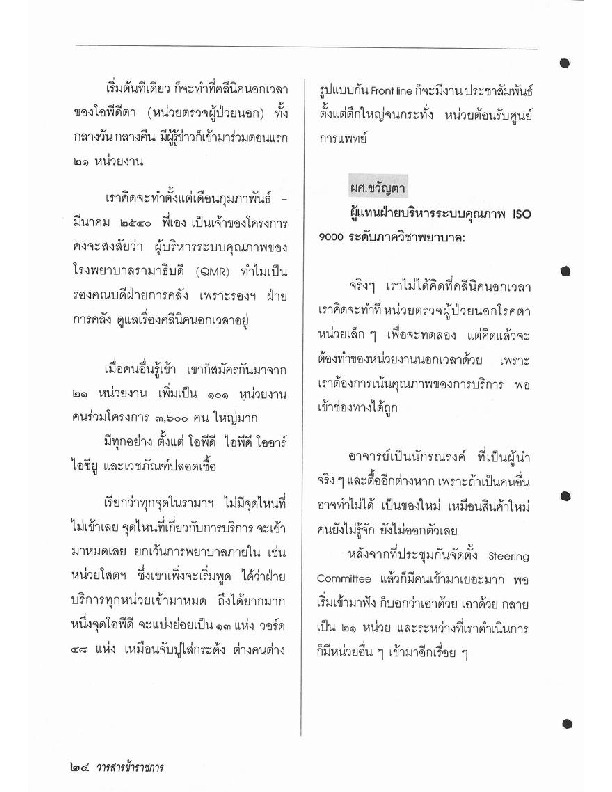 เริ่มต้นทีเดียว ก็จะทำที่คลีนิคนอกเวลา
ของโอพีดีตา (หน่วยตรวจผู้ป่วยนอก) ทั้ง
กลางวัน กลางคืน มีผู้รู้ข่าวก็เข้ามาร่วมตอนแรก
๒๑ หน่วยงาน
เราคิดจะทำตั้งแต่เดือนกุมภาพันธ์ -
มีนาคม ๒๕๔๐ พี่เอง เป็นเจ้าของโครงการ
คงจะสงสัยว่า ผู้บริหารระบบคุณภาพของ
โรงพยาบาลรามาธิบดี (QMR) ทำไมเป็น
รองคณบดีฝ่ายการคลัง เพราะรองฯ ฝ่าย
การคลัง ดูแลเรื่องคลีนิคนอกเวลาอยู่
เมื่อคนอื่นรู้เข้า เขาก็สมัครกันมาจาก
๒๑ หน่วยงาน เพิ่มเป็น ๑๐๑ หน่วยงาน
คนร่วมโครงการ ๓,๖๐๐ คน ใหญ่มาก
มีทุกอย่าง ตั้งแต่ โอพีดี ไอพีดี โออาร์
ไอซียู และเวชภัณฑ์ปลอดเชื้อ
เรียกว่าทุกจุดในรามาฯ ไม่มีจุดไหนที่
ไม่เข้าเลย จุดไหนที่เกี่ยวกับการบริการ จะเข้า
มาหมดเลย ยกเว้นการพยาบาลภายใน เช่น
หน่วยโสตฯ ซึ่งเขาเพิ่งจะเริ่มพูด ได้ว่าฝ่าย
บริการทุกหน่วยเข้ามาหมด ถึงได้ยากมาก
หนึ่งจุดโอพีดี จะแบ่งย่อยเป็น ๑๓ แห่ง วอร์ด
๔๘ แห่ง เหมือนจับปูใส่กระด้ง ต่างคนต่าง
รูปแบบกัน Front line ก็จะมีงาน ประชาสัมพันธ์
ตั้งแต่ตึกใหญ่จนกระทั่ง หน่วยต้อนรับศูนย์
การแพทย์
ผศ.ขวัญตา
ผู้แทนฝ่ายบริหารระบบคุณภาพ ISO
9000 ระดับภาควิชาพยาบาล:
จริงๆ เราไม่ได้คิดที่คลีนิคนอกเวลา
เราคิดจะทำที่ หน่วยตรวจผู้ป่วยนอกโรคตา
หน่วยเล็ก ๆ เพื่อจะทดลอง แต่คิดแล้วจะ
ต้องทำของหน่วยงานนอกเวลาด้วย เพราะ
เราต้องการเน้นคุณภาพของการบริการ พอ
เข้าช่องทางได้ถูก
อาจารย์เป็นนักรณรงค์ ที่เป็นผู้นำ
จริง ๆ และดื้ออีกต่างหาก เพราะถ้าเป็นคนอื่น
อาจทำไม่ได้ เป็นของใหม่ เหมือนสินค้าใหม่
คนยังไม่รู้จัก ยังไม่ออกตัวเลย
หลังจากที่ประชุมกันจัดตั้ง Steering
Committee แล้วก็มีคนเข้ามาเยอะมาก พอ
เริ่มเข้ามาฟัง ก็บอกว่าเอาด้วย เอาด้วย กลาย
เป็น ๒๑ หน่วย และระหว่างที่เราดำเนินการ
ก็มีหน่วยอื่น ๆ เข้ามาอีกเรื่อย ๆ
๒๔ วารสารข้าราชการ